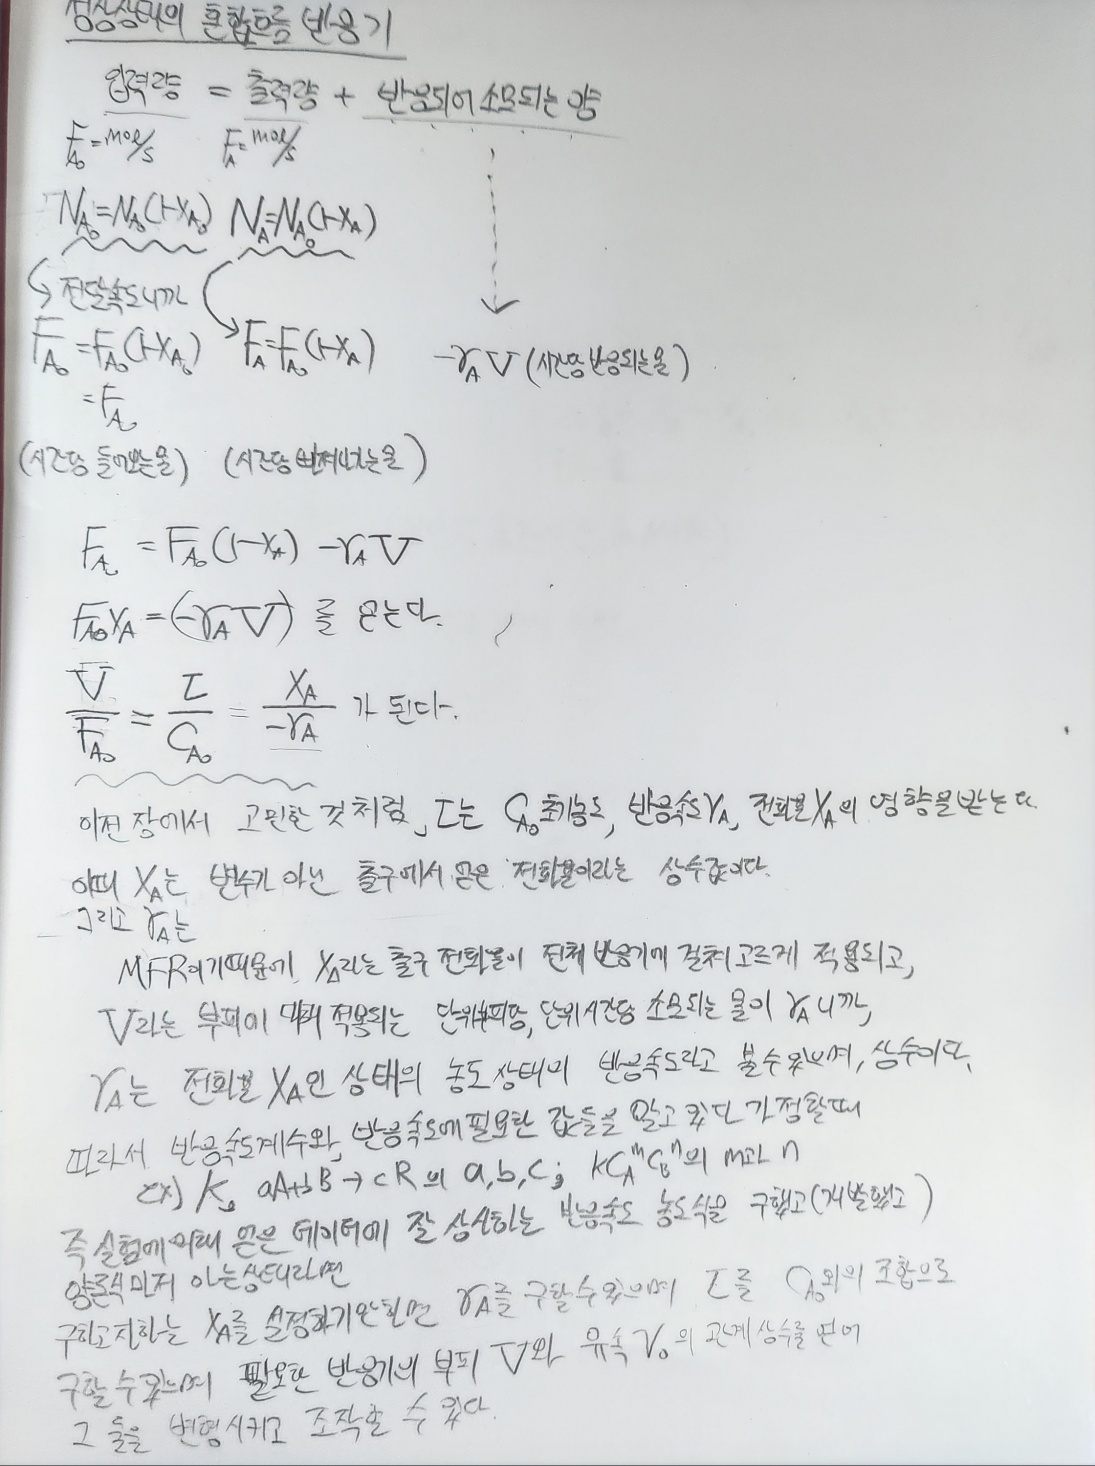 정상상태의 혼합흐름 반응기
입력량 = 출력량 + 반응되어 소모되는 양
F_A₀ = mol/s F_A = mol/s
N_A₀ = N_A₀(1-X_A₀) N_A = N_A₀(1-X_A)
전달속도니까
F_A₀ = F_A₀(1-X_A₀) F_A = F_A₀(1-X_A) -r_A V (시간당 반응되는 몰)
= F_A₀
(시간당 들어오는 몰) (시간당 빠져나가는 몰)
F_A₀ = F_A₀(1-X_A) -r_A V
F_A₀X_A = (-r_A V) 를 얻는다.
V/F_A₀ = τ/C_A₀ = X_A/-r_A 가 된다.
이전 장에서 고민한 것처럼, τ는 C_A₀ 초기농도, 반응속도 r_A, 전화율 X_A의 영향을 받는다.
이때 X_A는 변수가 아닌 출구에서 얻은 전화율이라는 상수값이다.
그리고 r_A는
MFR이기때문에 X_A라는 출구 전화율이 전체 반응기에 걸쳐 고르게 적용되고,
V라는 부피에 대해 적용되는 단위부피당, 단위시간당 소모되는 몰이 r_A니까,
r_A는 전화율 X_A인 상태의 농도상태의 반응속도라고 볼수있으며, 상수이다.
따라서 반응속도계수와, 반응속도에 필요한 값들을 알고 있다 가정할때
ex) k, aA+bB → cR 의 a,b,c; kC_A^m C_B^n의 m과 n
즉 실험에 의해 얻은 데이터에 잘 상사하는 반응속도 농도식을 구했고(개발했고)
양론식마저 아는상태라면
구하고자하는 X_A를 설정하기만한면 r_A를 구할수있으며 τ를 C_A₀와의 조합으로
구할 수 있으며 필요한 반응기의 부피 V와 유속 v₀의 관계상수를 얻어
그 둘을 변형시키고 조작할 수 있다.